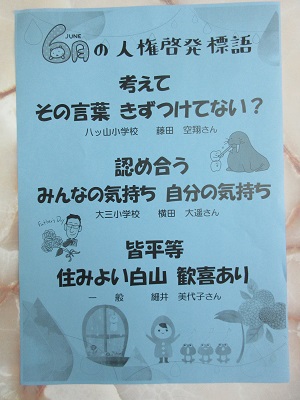 JUNE
6月の人権啓発標語
考えて
その言葉 きずつけてない？
八ッ山小学校 藤田 空翔さん
認め合う
みんなの気持ち 自分の気持ち
大三小学校 横田 大遥さん
Father's Day
皆平等
住みよい白山 歓喜あり
一般 細井 美代子さん